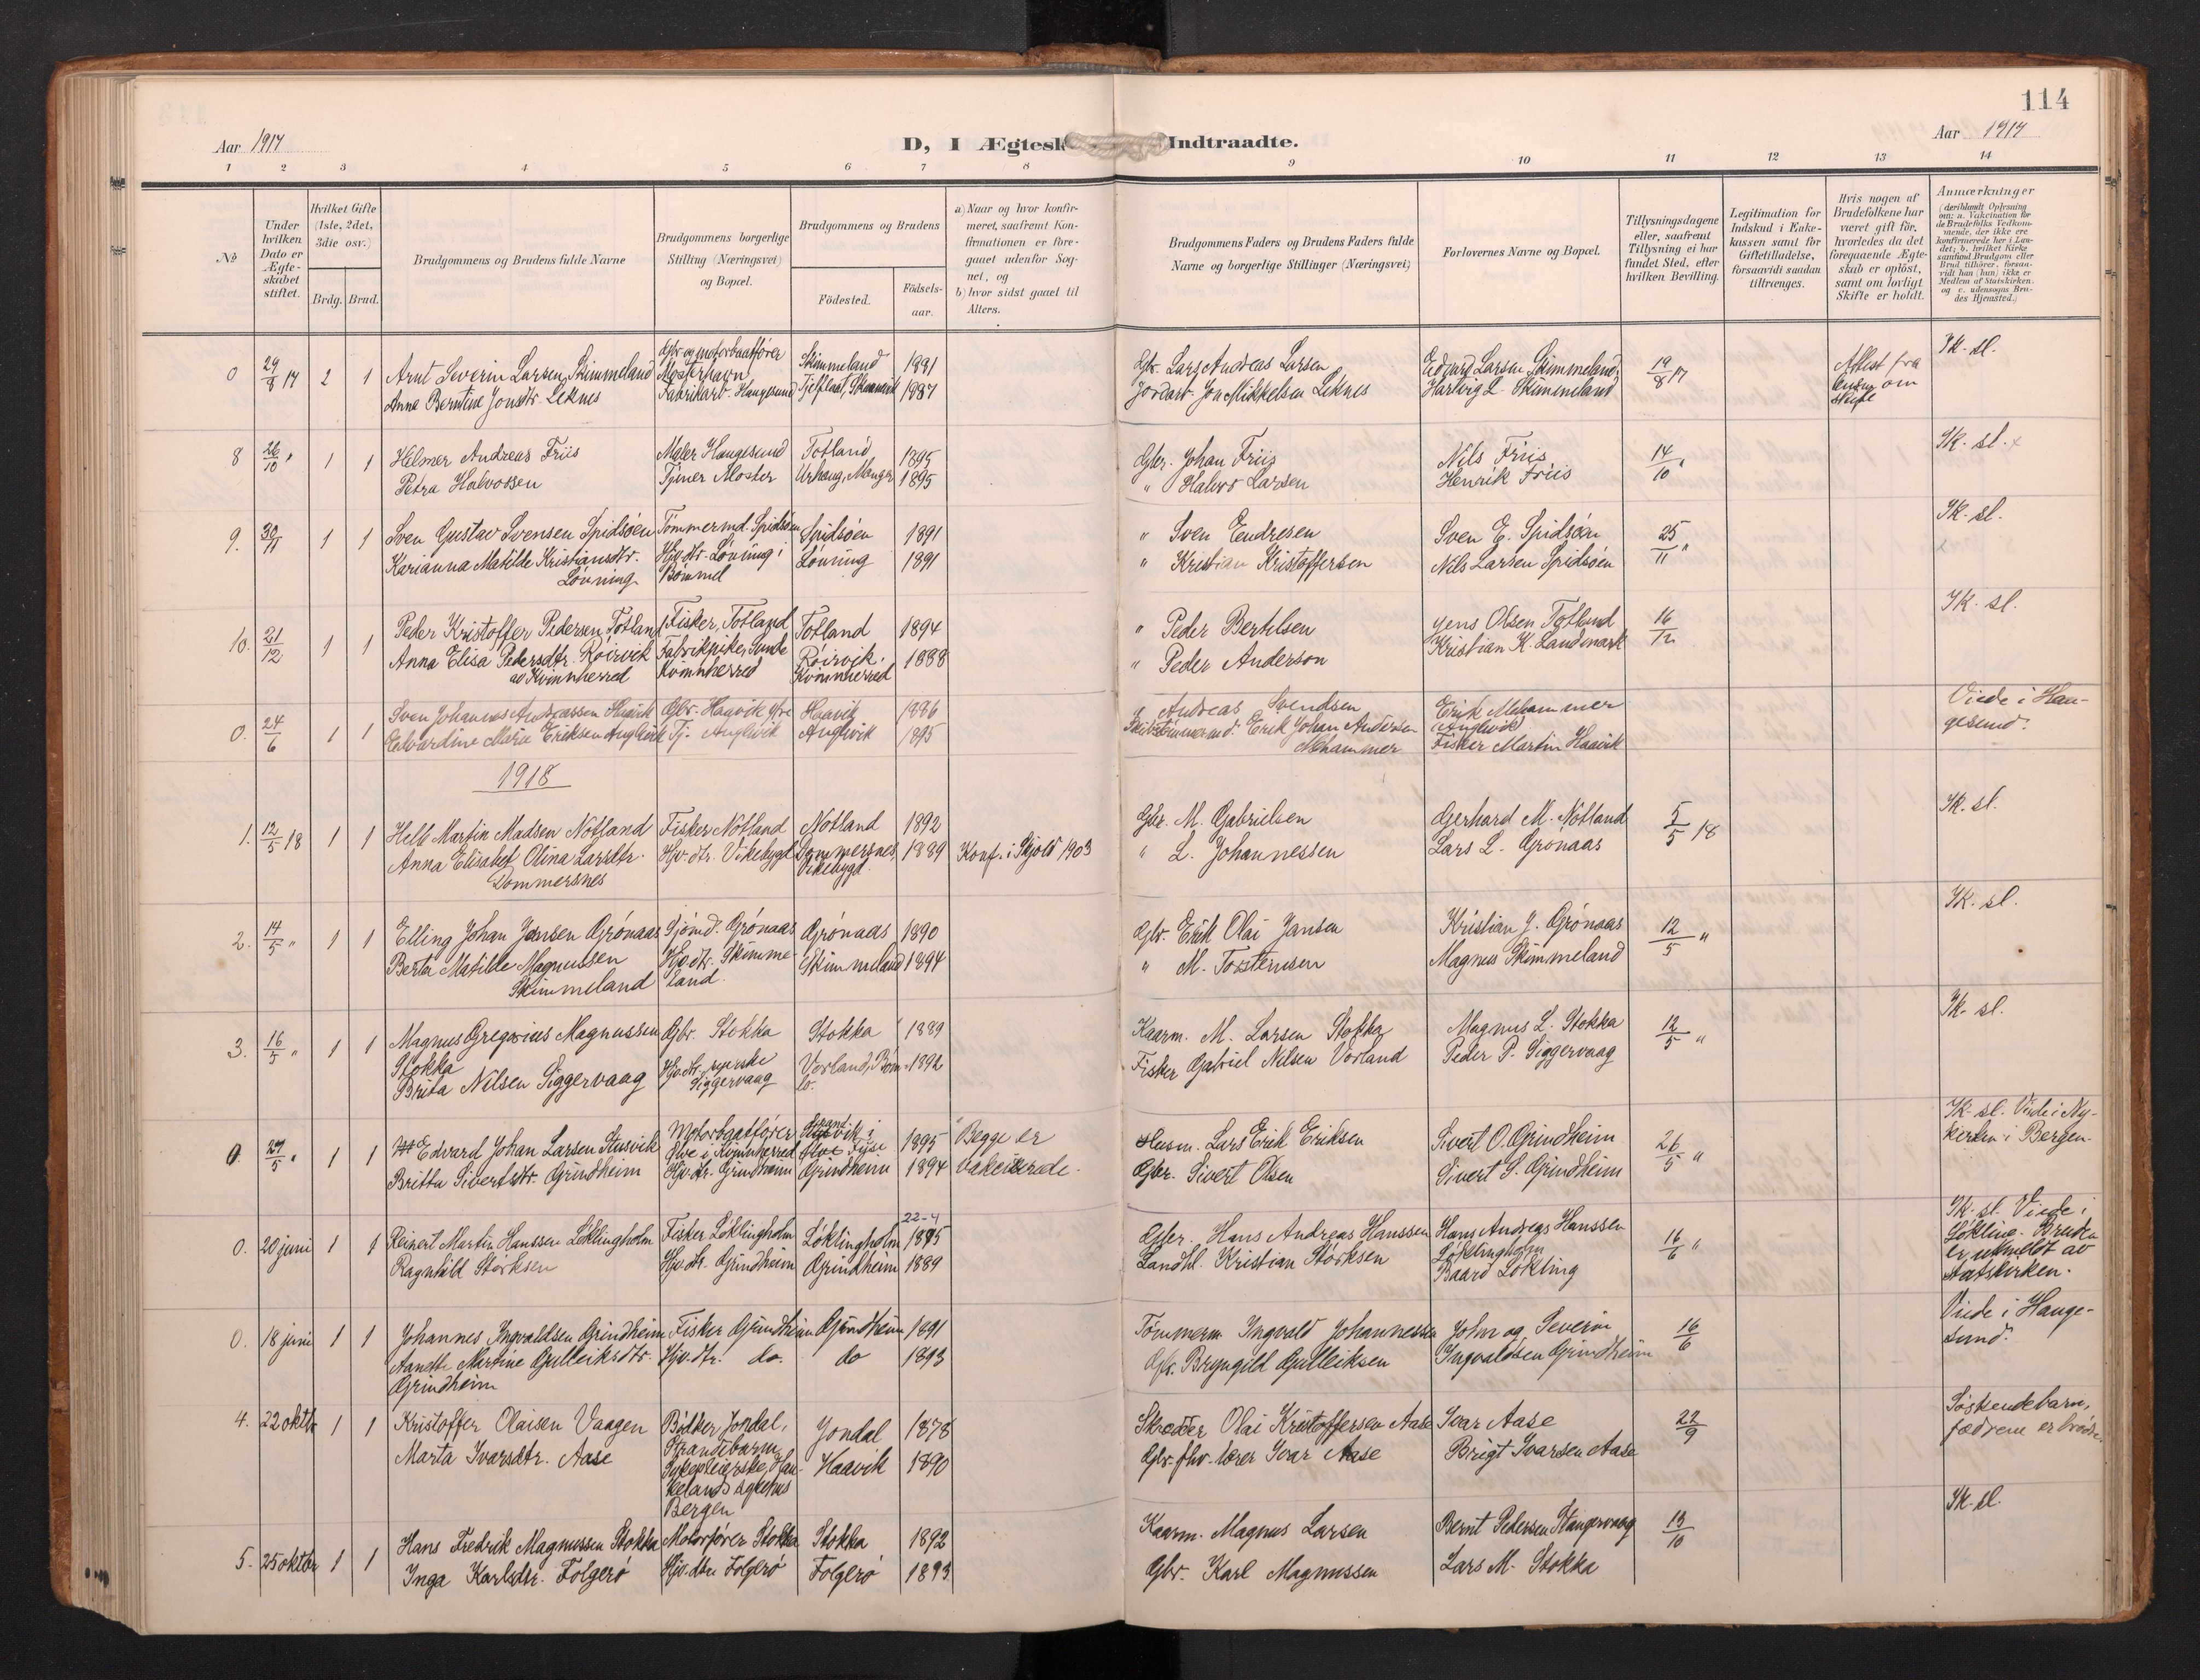 114
Aar 1917
D, I Ægtesk Indtraadte.
Aar 1917
1 2 3 4 5 6 7 8 9 10 11 12 13 14
No
Under hvilken Dato er Ægteskabet stiftet.
Hvilket Gifte (1ste, 2det, 3die osv.)
Brdg. Brud.
Brudgommens og Brudens fulde Navne
Brudgommens borgerlige Stilling (Næringsvei) og Bopæl.
Brudgommens og Brudens
Fødested.
Fødselsaar.
a) Naar og hvor konfirmeret, saafremt Konfirmationen er foregaaet udenfor Sognet, og
b) hvor sidst gaaet til Alters.
Brudgommens Faders og Brudens Faders fulde Navne og borgerlige Stillinger (Næringsvei)
Forlovernes Navne og Bopæl.
Tillysningsdagene eller, saafremt Tillysning ei har fundet Sted, efter hvilken Bevilling.
Legitimation for Indskud i Enkekassen samt for Giftetilladelse, forsaavidt saadan tiltrænges.
Hvis nogen af Brudefolkene har været gift før, hvorledes da det foregaaende Ægteskab er opløst, samt om lovligt Skifte er holdt.
Anmærkninger
(deriblandt Oplysning om: a. Vakcination for de Brudefolks Vedkommende, der ikke ere konfirmerede her i Landet; b. hvilket Kirkesamfund Brudgom eller Brud tilhører, forsaavidt han (hun) ikke er Medlem af Statskirken, og c. udensogns Brudes Hjemsted.)
0 29/8 17 2 1 Arnt Severin Larsen Skimmeland Gbr. og motorbaatfører Mosterhavn Skimmeland 1891 Gbr. Lars Andreas Larsen Edvard Larsen Skimmeland 19/8 17 Attest fra om skifte Ik. sl.
Anna Berntine Jonsdtr. Leknes Fabrikarb. Haugesund Tjeltland, Skaanevik 1887 Jordarb. Jon Mikkelsen Leknes Hartvig L. Skimmeland
8 26/10 " 1 1 Helmer Andreas Friis Maler Haugesund Totland 1895 Gbr. Johan Friis Nils Friis 14/10 " Ik. sl. x
Petra Halvorsen Tjener Moster Urhaug, Manger 1895 " Halvor Larsen Henrik Friis
9. 30/11 1 1 Sven Gustav Svensen Spidsøen Tømmermd. Spidsøen Spidsøen 1891 " Sven Endresen Sven E. Spidsøen 25/11 " Ik. sl.
Karianna Matilde Kristiansdtr. Løvning Hjv. dtr. Løvning i Bømmel Løvning 1891 " Kristian Kristoffersen Nils Larsen Spidsøen
10. 21/12 1 1 Peder Kristoffer Pedersen Totland Fisker, Totland Totland 1894 " Peder Bertelsen Jens Olsen Totland 16/12 Ik. sl.
Anna Elisa Pedersdtr. Røirvik av Kvinnherred Fabrikpike, Sunde Kvinnherred Røirvik, Kvinnherred 1888 " Peder Anderson Kristian K. Landmark
0. 24/6 1 1 Sven Johannes Andreassen Haavik Gbr. Haavik Haavik 1886 " Andreas Svendsen Erik Mehammer (Anglevik) Viede i Haugesund.
Edvardine Marie Eriksen Anglevik Tj. Anglevik Anglevik 1895 Skibstømmermd. Erik Johan Andersen Mehammer Fisker Martin Haavik
1918
1. 12/5 18 1 1 Helle Martin Madsen Notland Fisker Notland Notland 1892 Gbr. M. Gabrielsen Gerhard M. Notland 5/5 18 Ik. sl.
Anna Elisabet Olina Larsdtr. Dommersnes Hjv. dtr. Vikebygd Dommersnes Vikebygd. 1889 Konf. i Skjold 1903 " L. Johannessen Lars L. Grønaas
2. 14/5 " 1 1 Elling Johan Jansen Grønaas Sjømd. Grønaas Grønaas 1890 Gbr. Erik Olai Jansen Kristian J. Grønaas 12/5 " Ik. sl.
Berta Matilde Magnussen Skimmeland Hjv. dtr. Skimmeland. Skimmeland 1894 " M. Torsteinsen Magnus Skimmeland
3. 16/5 " 1 1 Magnus Gregorius Magnussen Stokka Gbr. Stokka Stokka 1889 Kaarm. M. Larsen Stokka Magnus L. Stokka 12/5 " Ik. sl.
Brita Nilsen Siggervaag Hjv. dtr. Siggervaag Vorland, Bømlo. 1892 Fisker Gabriel Nilsen Vorland Peder P. Siggervaag
0. 27/5 " 1 1 Edvard Johan Larsen Susvik Motorbaatfører Ølve i Kvinnherred 1895 Begge er vakcinerede. Husm. Lars Erik Eriksen Sivert O. Grindheim 26/5 " Ik. sl. Viede i Nykirken i Bergen.
Britta Sivertsdtr. Grindheim Hjv. dtr. Grindheim Grindheim 1894 Gbr. Sivert Olsen Sivert S. Grindheim
0. 20 juni 1 1 Reinert Martin Hanssen Løklingholm Fisker Løklingholm Løklingholm 22-4 1895 Gbr. Hans Andreas Hanssen Hans Andreas Hanssen Løklingholm 16/6 " Ik. sl. Viede i Løkling. Bruden er utmeldt av statskirken.
Ragnhild Størksen Hjv. dtr. Grindheim Grindheim 1889 Landhl. Kristian Størksen Baard Løkling
0. 18 juni 1 1 Johannes Ingvaldsen Grindheim Fisker Grindheim Grindheim 1891 Tømmerm. Ingvald Johannessen John og Severin 16/6 Viede i Haugesund.
Anette Martine Gulleiksdtr. Grindheim Hjv. dtr. do. do 1893 Gbr. Bryngild Gulleiksen Ingvaldsen Grindheim
4. 22 oktbr 1 1 Kristoffer Olaisen Vaagen Bødker, Jondal, Strandebarm Jondal 1878 Skrædder Olai Kristoffersen Aase Ivar Aase 22/9 Søskendebarn, fædrene er brødre.
Marta Ivarsdtr. Aase Sykepleierske, Haukelands sykehus Bergen Haavik 1890 Gbr. fhv. lærer Ivar Aase Brigt Ivarsen Aase
5. 25 oktbr 1 1 Hans Fredrik Magnussen Stokka Motorfører Stokka Stokka 1892 Kaarm. Magnus Larsen Bernt Pedersen Stangervaag 13/10 Ik. sl.
Inga Karlsdtr. Folgerø Hjv. dtr. Folgerø Folgerø 1893 Gbr. Karl Magnussen Lars M. Stokka